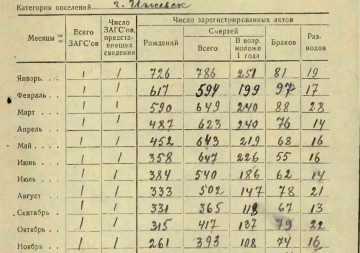 Категория поселений г. Ижевск
Месяцы Всего ЗАГС'ов Число ЗАГС'ов, представивших сведения Число зарегистрированных актов
Рождений Смертей Браков Разводов
Всего В возр. моложе 1 года
Январь 1 1 726 786 251 81 19
Февраль 1 1 617 594 199 97 17
Март 1 1 590 649 240 88 28
Апрель 1 1 487 623 240 76 14
Май 1 1 452 643 219 68 16
Июнь 1 1 358 647 226 55 16
Июль 1 1 384 540 186 62 14
Август 1 1 333 502 147 78 21
Сентябрь 1 1 331 365 118 67 13
Октябрь 1 1 315 417 137 79 22
Ноябрь 1 1 261 393 108 74 16